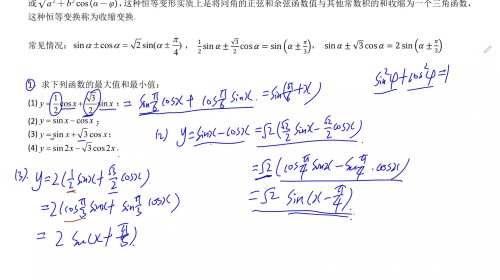 或√a²+b²cos(α−φ),这种恒等变形实质上是将同角的正弦和余弦函数值与其他常数积的和收缩为一个三角函数,
这种恒等变换称为收缩变换.
常见情况: sinα±cosα=√2sin(α±π/4), 1/2sinα±√3/2cosα=sin(α±π/3), sinα±√3cosα=2sin(α±π/3)
求下列函数的最大值和最小值:
(1) y=1/2cosx+√3/2sinx; = sinπ/6cosx+cosπ/6sinx=sin(π/6+x)
sin²φ+cos²φ=1
(2) y=sinx−cosx;
(3) y=sinx+√3cosx;
(4) y=sin2x−√3cos2x.
(2) y=sinx−cosx=√2(√2/2sinx−√2/2cosx)
=√2(cosπ/4sinx−sinπ/4·cosx)
=√2 sin(x−π/4).
(3). y=2(1/2sinx+√3/2cosx)
=2(cosπ/3sinx+sinπ/3cosx)
=2sin(x+π/3)